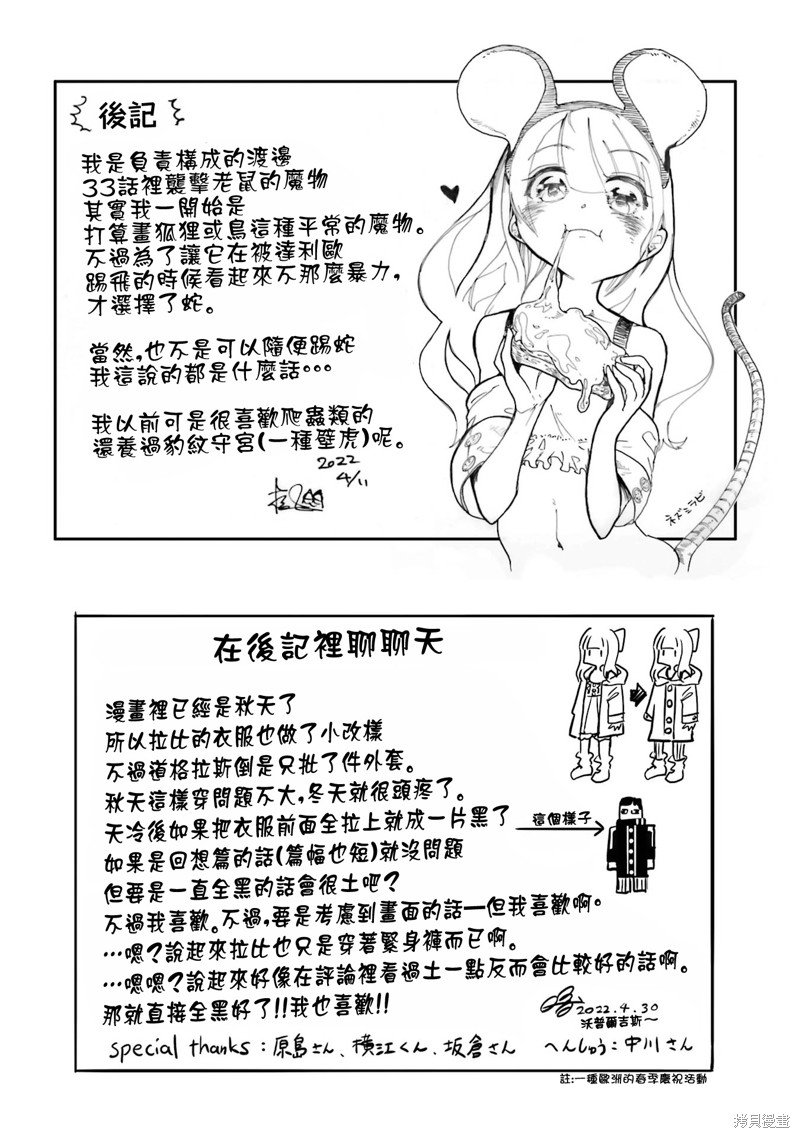 後記
我是負責構成的渡邊
33話裡襲擊老鼠的魔物
其實我一開始是
打算畫狐狸或鳥這種平常的魔物。
不過為了讓它在被達利歐
踢飛的時候看起來不那麼暴力,
才選擇了蛇。
當然,也不是可以隨便踢蛇
我這說的都是什麼話…
我以前可是很喜歡爬蟲類的
還養過豹紋守宮(一種壁虎)呢。
2022
4/11
ネズミラビ
在後記裡聊聊天
漫畫裡已經是秋天了
所以拉比的衣服也做了小改樣
不過道格拉斯倒是只批了件外套。
秋天這樣穿問題不大,冬天就很頭疼了。
天冷後如果把衣服前面全拉上就成一片黑了
這個樣子
如果是回想篇的話(篇幅也短)就沒問題
但要是一直全黑的話會很土吧?
不過我喜歡。不過,要是考慮到畫面的話—但我喜歡啊。
…嗯?說起來拉比也只是穿著緊身褲而已啊。
…嗯嗯?說起來好像在評論裡看過土一點反而會比較好的話啊。
那就直接全黑好了!!我也喜歡!!
2022.4.30
沃普爾吉斯~
special thanks:原島さん、横江くん、坂倉さん へんしゅう:中川さん
註:一種歐洲的春季慶祝活動
拷貝漫畫